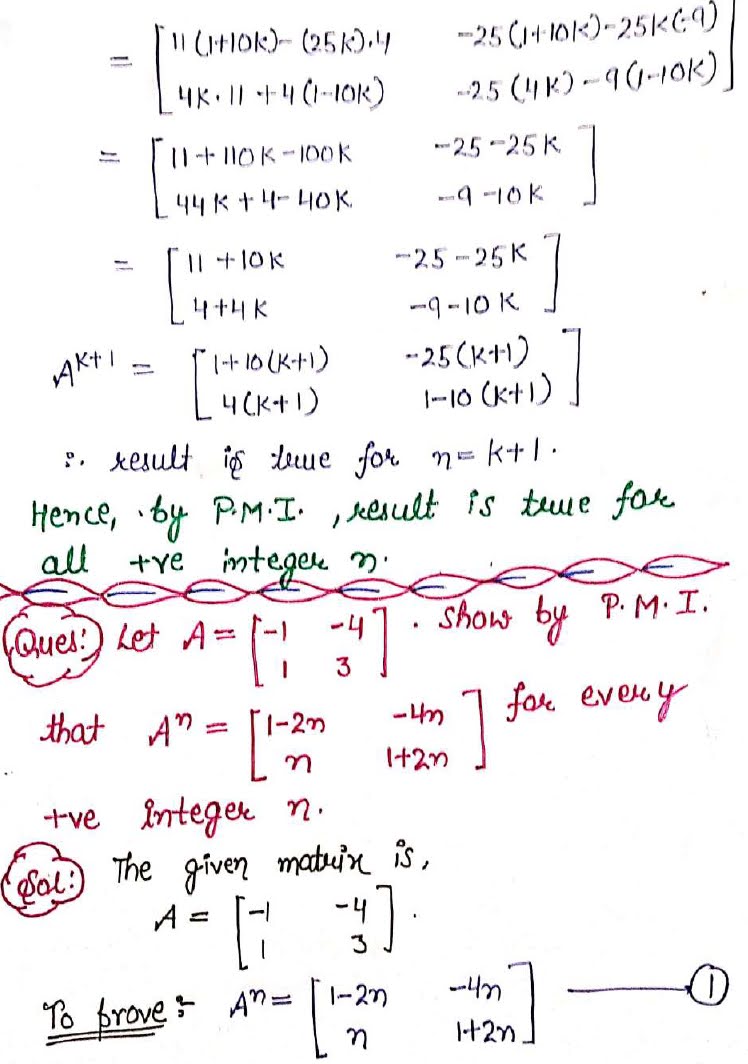 = [ 11(1+10k)-(25k).4    -25(1+10k)-25k(-9) ]
[ 4k.11+4(1-10k)    -25(4k)-9(1-10k) ]
= [ 11+110k-100k    -25-25k ]
[ 44k+4-40k    -9-10k ]
= [ 11+10k    -25-25k ]
[ 4+4k    -9-10k ]
A^{k+1} = [ 1+10(k+1)    -25(k+1) ]
[ 4(k+1)    1-10(k+1) ]
∴ result is true for n=k+1.
Hence, by P.M.I., result is true for
all +ve integer n.
Ques: Let A = [ -1    -4 ] . Show by P.M.I.
[ 1    3 ]
that A^n = [ 1-2n    -4n ] for every
[ n    1+2n ]
+ve integer n.
Sol: The given matrix is,
A = [ -1    -4 ] .
[ 1    3 ]
To prove :- A^n = [ 1-2n    -4n ] —— ①
[ n    1+2n ]